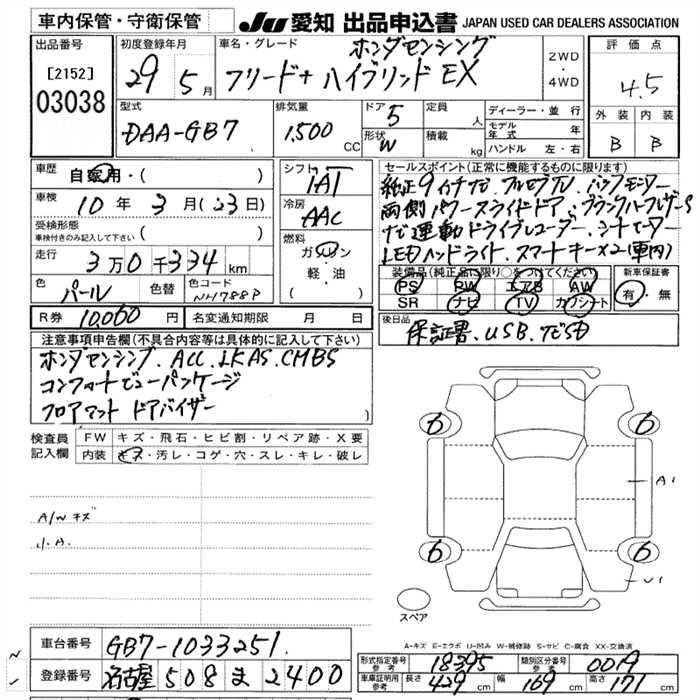 車内保管・守衛保管
JU 愛知 出品申込書 JAPAN USED CAR DEALERS ASSOCIATION
出品番号
[2152]
03038
初度登録年月
29 5月
車名・グレード
ホンダセンシング
フリード+ ハイブリッド EX
2WD
・
4WD
評価点
4.5
外装 内装
B B
型式
DAA-GB7
排気量
1,500 CC
ドア 5
形状 W
定員 人
積載 kg
ディーラー・並行
モデル年式 年
ハンドル 左・右
車歴
自家用・( )
車検
10年 3月( 3日)
受検形態
車検付きのみ記入して下さい ・( )
走行
3万0千334 km
色
パール
色替
色コード
NH788P
シフト
IAT
冷房
AAC
燃料
ガソリン
軽・油
( )
セールスポイント(正常に機能するものに限ります)
純正9インチナビ、フルセグTV、バックモニター
両側パワースライドドア、
ナビ連動ドライブレコーダー、シートヒーター
LEDヘッドライト、スマートキー×2(車内)
装備品(純正品に限り○をつけてください)
PS PW エアB AW
SR ナビ TV カワシート
新車保証書
有・無
R券 10,060 円
名変通知期限 月 日
後日品
保証書、USB、
注意事項申告欄(不具合内容等は具体的に記入して下さい)
ホンダセンシング、ACC、LKAS、CMBS
コンフォートビューパッケージ
フロアマット ドアバイザー
)
検査員
記入欄
FW キズ・飛石・ヒビ割・リペア跡・X要
内装 キズ・汚レ・コゲ・穴・スレ・キレ・破レ
A/W キズ
小A.
6 6
A1
6 6
U1
スペア
A-キズ E-エクボ U-凹み W-補修跡 S-サビ C-腐食 XX-交換済
車台番号
GB7-1033251
登録番号
名古屋 508 ま 2400
形式指定番号
参考
18395
類別区分番号
参考
0019
車庫証明用
参考
長さ 429 cm 幅 169 cm 高さ 171 cm